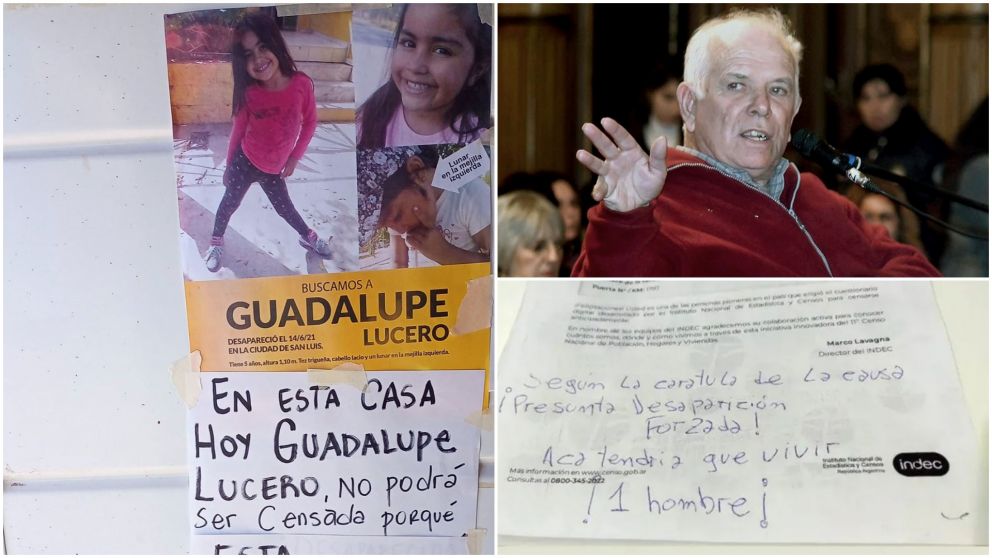 Lunar
en la mejilla
izquierda
BUSCAMOS A
GUADALUPE
LUCERO
DESAPARECIÓ EL 14/6/21
EN LA CIUDAD DE SAN LUIS.
Tiene 5 años, altura 1,10 m. Tez trigueña, cabello lacio y un lunar en la mejilla izquierda.
EN ESTA CASA
HOY GUADALUPE
LUCERO, NO podrá
ser Censada porqué
ESTA
Puerta N°/KM:
digital desarrollado por el Instituto Nacional de Estadística y Censos para censarse
anticipadamente.
En nombre de los equipos del INDEC agradecemos su colaboración activa para conocer
cuántos somos, dónde y cómo vivimos a través de esta iniciativa innovadora del 11° Censo
Nacional de Población, Hogares y Viviendas.
Marco Lavagna
Director del INDEC
¡Según la caratula de la causa
¡Presunta Desaparición
Forzada!
Aca tendria que vivir
Instituto Nacional de
Estadística y Censos
República Argentina
indec
Más información en www.censo.gob.ar
Consultas al 0800-345-2022
¡1 hombre¡